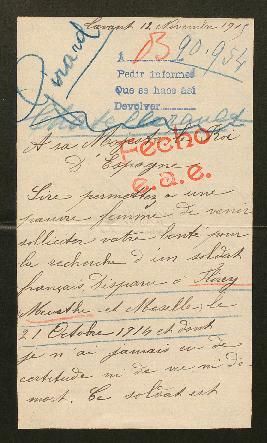 Gérard
Carant 12 Novembre 1915
A
B 90.954
Pedir informes
Que se haga así
Devolver
Chatellerault
A sa Majesté le Roi
D'Espagne
Fecho
e.a.e.
Sire permettez a une
pauvre femme de venir
solliciter votre bonté pour
la recherche d'un soldat
français Disparu a Flirey
Meurthe et Moselle, le
21 Octobre 1914 et dont
je n'ai jamais eu de
certitude ni de vie ni de
mort. Ce soldat est